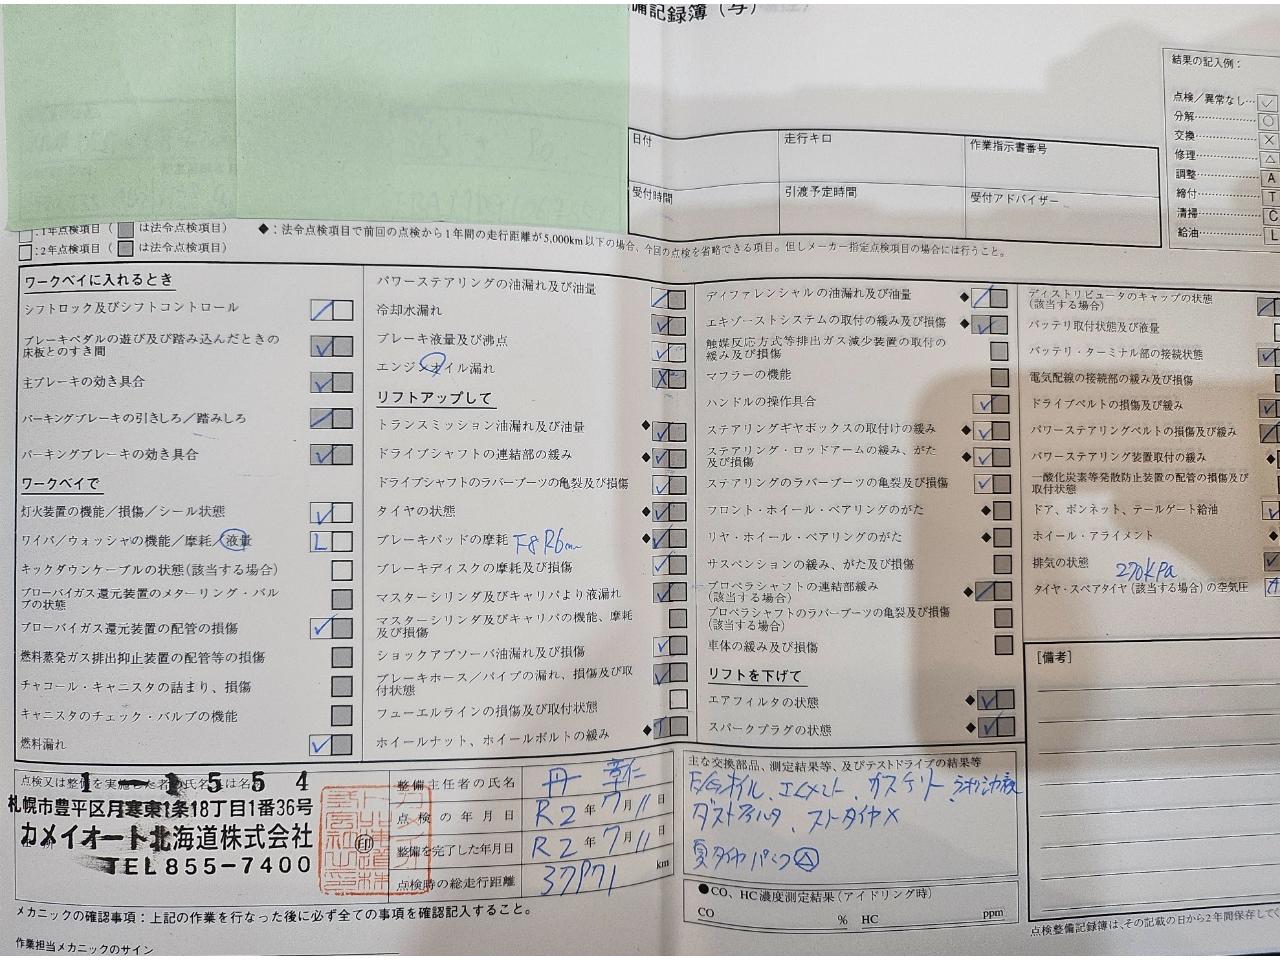 備記録簿（写）
結果の記入例：
点検／異常なし… ✓
分解…… ○
交換…… X
修理…… △
調整…… A
締付…… T
清掃…… C
給油…… L
日付
走行キロ
作業指示書番号
受付時間
引渡予定時間
受付アドバイザー
：1年点検項目（ は法令点検項目）
：2年点検項目（ は法令点検項目）
◆：法令点検項目で前回の点検から1年間の走行距離が5,000km以下の場合、今回の点検を省略できる項目。但しメーカー指定点検項目の場合には行うこと。
ワークベイに入れるとき
シフトロック及びシフトコントロール
ブレーキペダルの遊び及び踏み込んだときの
床板とのすき間 ✓
主ブレーキの効き具合 ✓
パーキングブレーキの引きしろ／踏みしろ
パーキングブレーキの効き具合 ✓
ワークベイで
灯火装置の機能／損傷／シール状態 ✓
ワイパ／ウォッシャの機能／摩耗／液量 L
キックダウンケーブルの状態（該当する場合）
ブローバイガス還元装置のメターリング・バル
ブの状態
ブローバイガス還元装置の配管の損傷 ✓
燃料蒸発ガス排出抑止装置の配管等の損傷
チャコール・キャニスタの詰まり、損傷
キャニスタのチェック・バルブの機能
燃料漏れ ✓
パワーステアリングの油漏れ及び油量
冷却水漏れ ✓
ブレーキ液量及び沸点 ✓
エンジンオイル漏れ X
リフトアップして
トランスミッション油漏れ及び油量 ◆ ✓
ドライブシャフトの連結部の緩み ◆ ✓
ドライブシャフトのラバーブーツの亀裂及び損傷 ✓
タイヤの状態 ◆ ✓
ブレーキパッドの摩耗 F8 R6mm ◆ ✓
ブレーキディスクの摩耗及び損傷 ✓
マスターシリンダ及びキャリパより液漏れ ✓
マスターシリンダ及びキャリパの機能、摩耗
及び損傷
ショックアブソーバ油漏れ及び損傷 ✓
ブレーキホース／パイプの漏れ、損傷及び取
付状態 ✓
フューエルラインの損傷及び取付状態
ホイールナット、ホイールボルトの緩み ◆ T
ディファレンシャルの油漏れ及び油量 ◆
エキゾーストシステムの取付の緩み及び損傷 ◆ ✓
触媒反応方式等排出ガス減少装置の取付の
緩み及び損傷
マフラーの機能
ハンドルの操作具合 ✓
ステアリングギヤボックスの取付けの緩み ◆ ✓
ステアリング・ロッドアームの緩み、がた
及び損傷 ◆ ✓
ステアリングのラバーブーツの亀裂及び損傷 ✓
フロント・ホイール・ベアリングのがた ◆
リヤ・ホイール・ベアリングのがた ◆
サスペンションの緩み、がた及び損傷
プロペラシャフトの連結部緩み
（該当する場合） ◆
プロペラシャフトのラバーブーツの亀裂及び損傷
（該当する場合）
車体の緩み及び損傷
リフトを下げて
エアフィルタの状態 ◆ ✓
スパークプラグの状態 ◆ ✓
ディストリビュータのキャップの状態
（該当する場合）
バッテリ取付状態及び液量
バッテリ・ターミナル部の接続状態 ✓
電気配線の接続部の緩み及び損傷
ドライブベルトの損傷及び緩み ✓
パワーステアリングベルトの損傷及び緩み
パワーステアリング装置取付の緩み ◆
一酸化炭素等発散防止装置の配管の損傷及び
取付状態
ドア、ボンネット、テールゲート給油 ✓
ホイール・アライメント ◆
排気の状態 ✓
270kPa
タイヤ・スペアタイヤ（該当する場合）の空気圧 A
［備考］
点検又は整備を実施した者の氏名又は名
1-1554
札幌市豊平区月寒東1条18丁目1番36号
カメイオート北海道株式会社
TEL 855-7400
印
整備主任者の氏名 丹 彰仁
点検の年月日 R2年7月11日
整備を完了した年月日 R2年7月11日
点検時の総走行距離 37971 km
主な交換部品、測定結果等、及びテストドライブの結果等
E/Gオイル、エレメント、ガスケット
ダストフィルタ、
夏タイヤ
●CO、HC濃度測定結果（アイドリング時）
CO % HC ppm
メカニックの確認事項：上記の作業を行なった後に必ず全ての事項を確認記入すること。
点検整備記録簿は、その記載の日から2年間保存して
作業担当メカニックのサイン